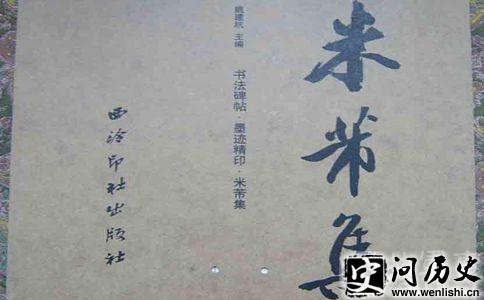 米芾集
姚建杭 主编
书法碑帖·墨迹精印·米芾集
西泠印社出版社
史问历史
www.wenlishi.cn